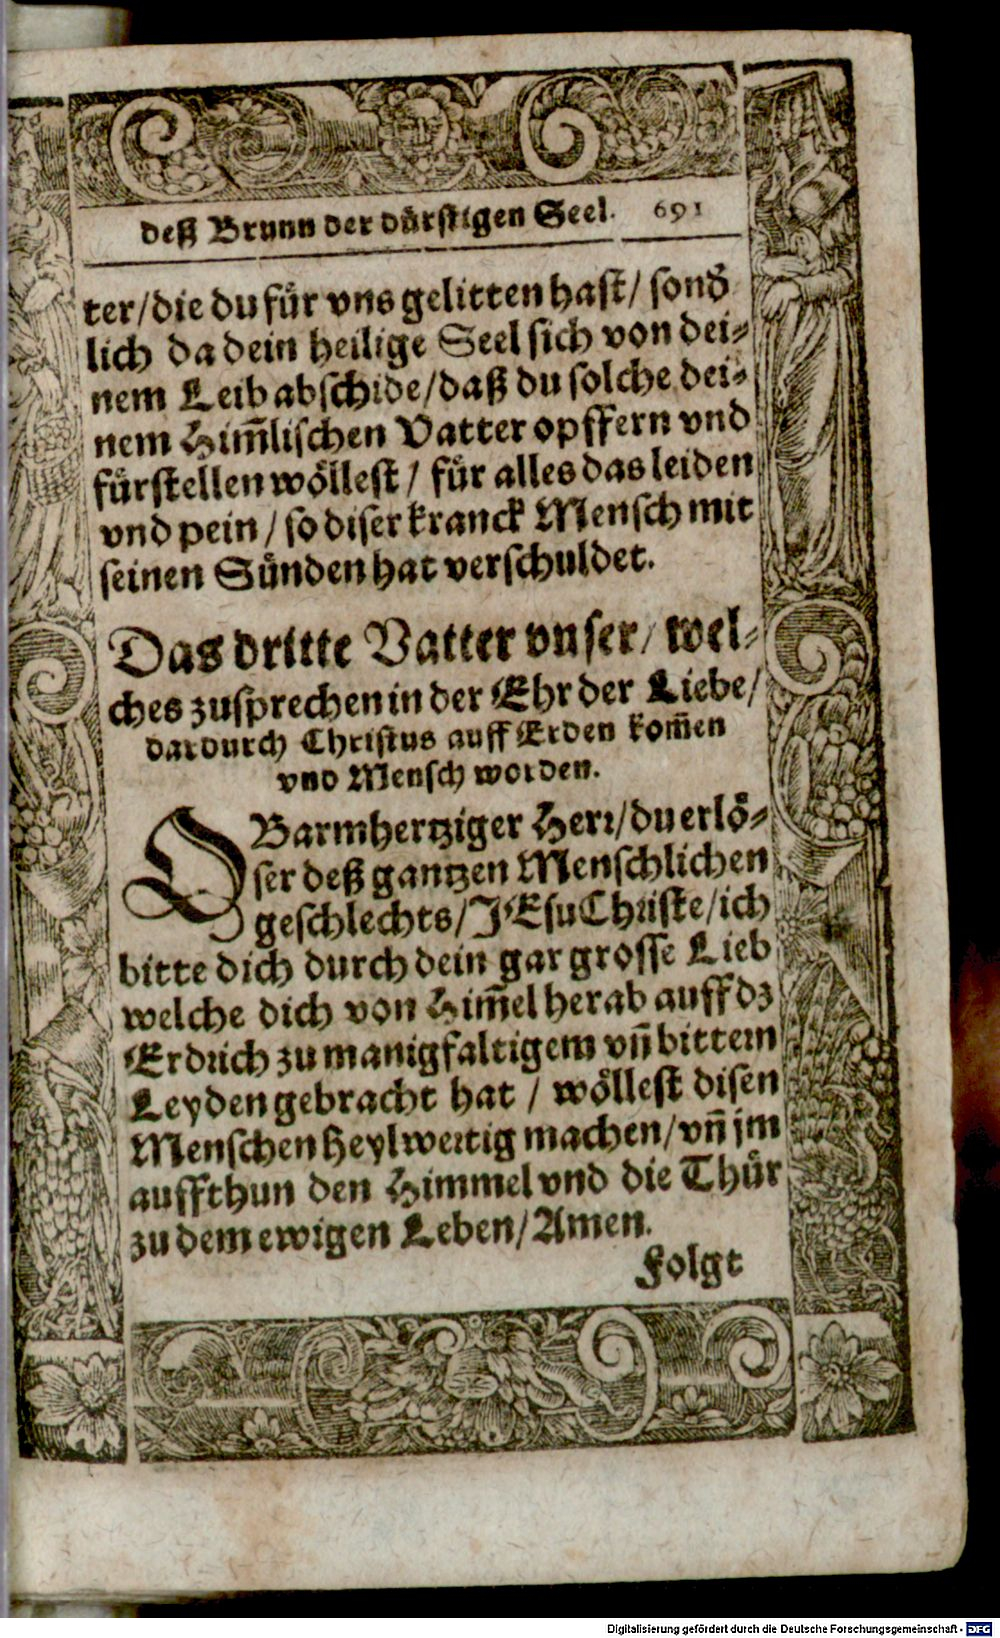 deß Brunn der dürstigen Seel. 691
ter/die du für vns gelitten hast/ sond̃
lich da dein heilige Seel sich von dei⸗
nem Leib abschide/daß du solche dei⸗
nem Him̃lischen Vatter opffern vnd
fürstellen wöllest/ für alles das leiden
vnd pein/ so diser kranck Mensch mit
seinen Sünden hat verschuldet.
Das dritte Vatter vnser/ wel⸗
ches zusprechen in der Ehr der Liebe/
dardurch Christus auff Erden kom̃en
vnd Mensch worden.
O Barmhertziger Herr/du erlö⸗
ser deß gantzen Menschlichen
geschlechts/JEsu Christe/ich
bitte dich durch dein gar grosse Lieb
welche dich von Him̃el herab auff dz
Erdrich zu manigfaltigem vñ bitterm
Leyden gebracht hat / wöllest disen
Menschen heylwertig machen/vñ jm
auffthun den Himmel vnd die Thür
zu dem ewigen Leben/Amen.
Folgt
Digitalisierung gefördert durch die Deutsche Forschungsgemeinschaft - DFG